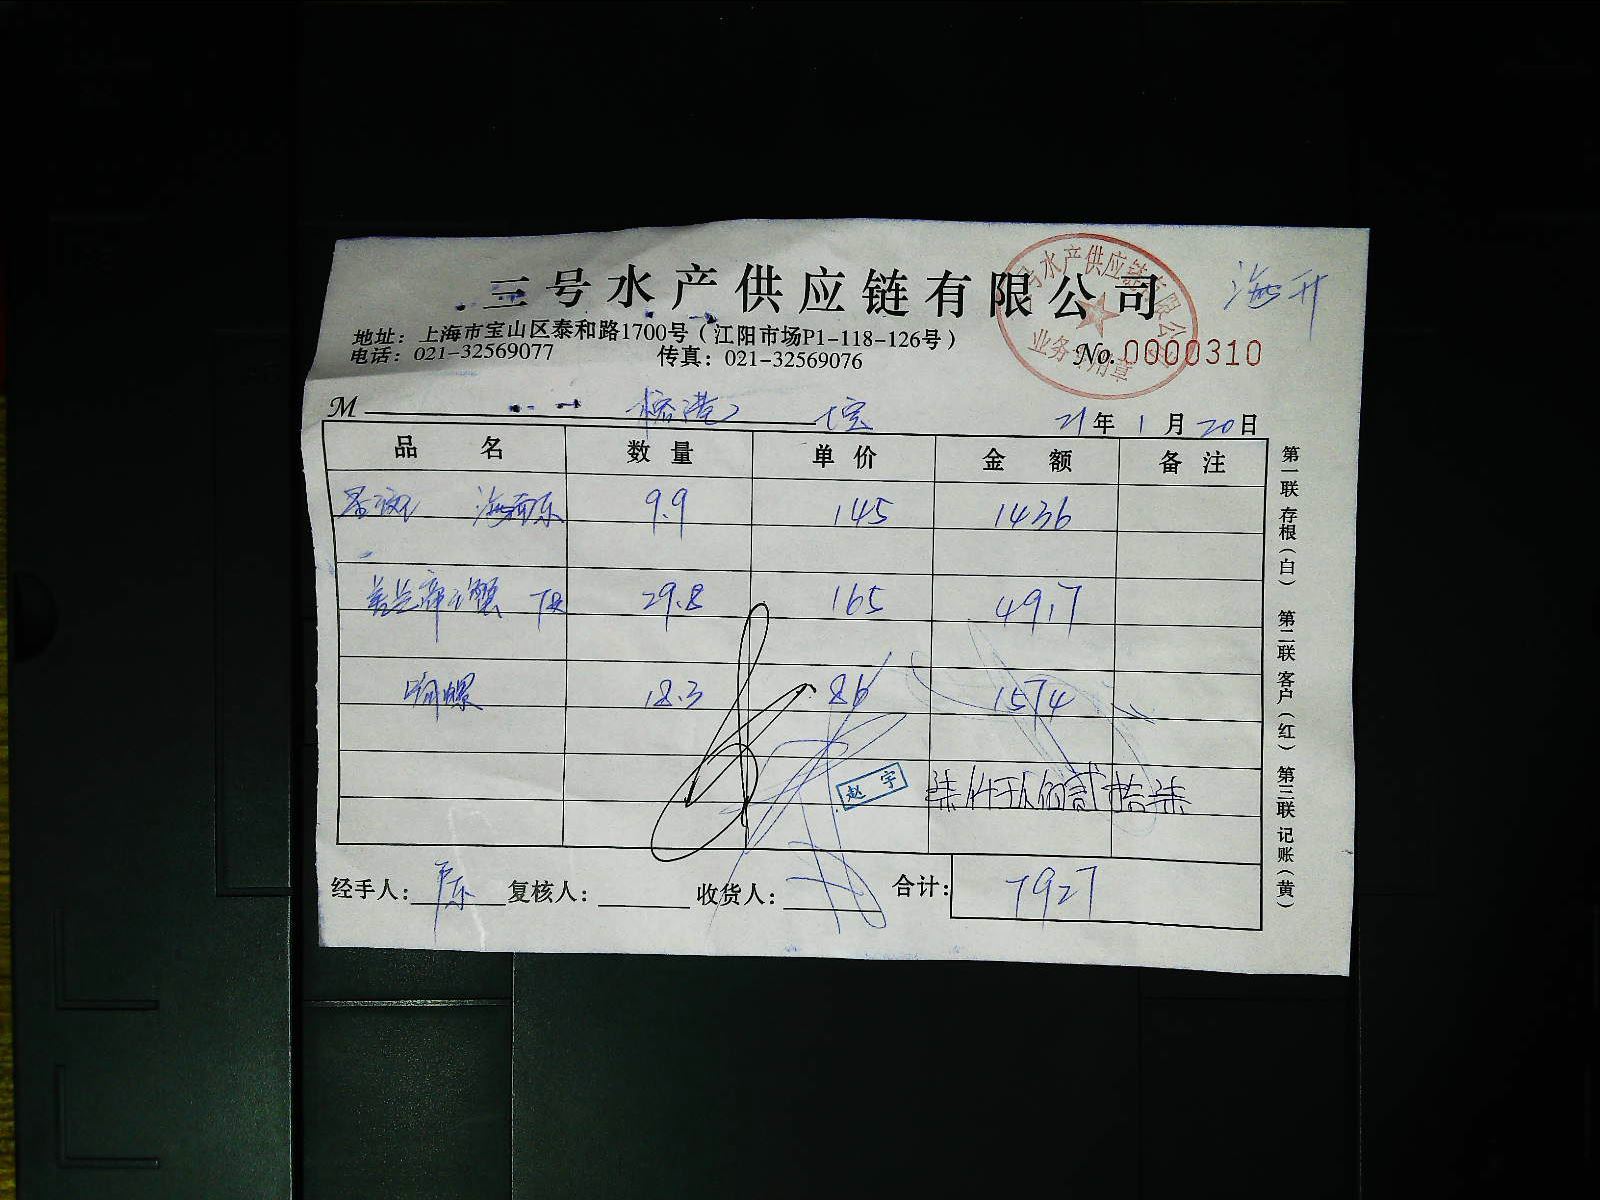 三号水产供应链有限公司
海升
地址：上海市宝山区泰和路1700号（江阳市场P1-118-126号）
电话：021-32569077 传真：021-32569076
No. 0000310
号水产供应链有限公
业务专用章
M 榕港
21年1月20日
品名 数量 单价 金额 备注
9.9 145 1436
29.8 165 4917
18.3 86 1574
赵宇
柒仟玖佰贰拾柒
经手人： 复核人： 收货人： 合计： 7927
第一联 存根（白） 第二联 客户（红） 第三联 记账（黄）